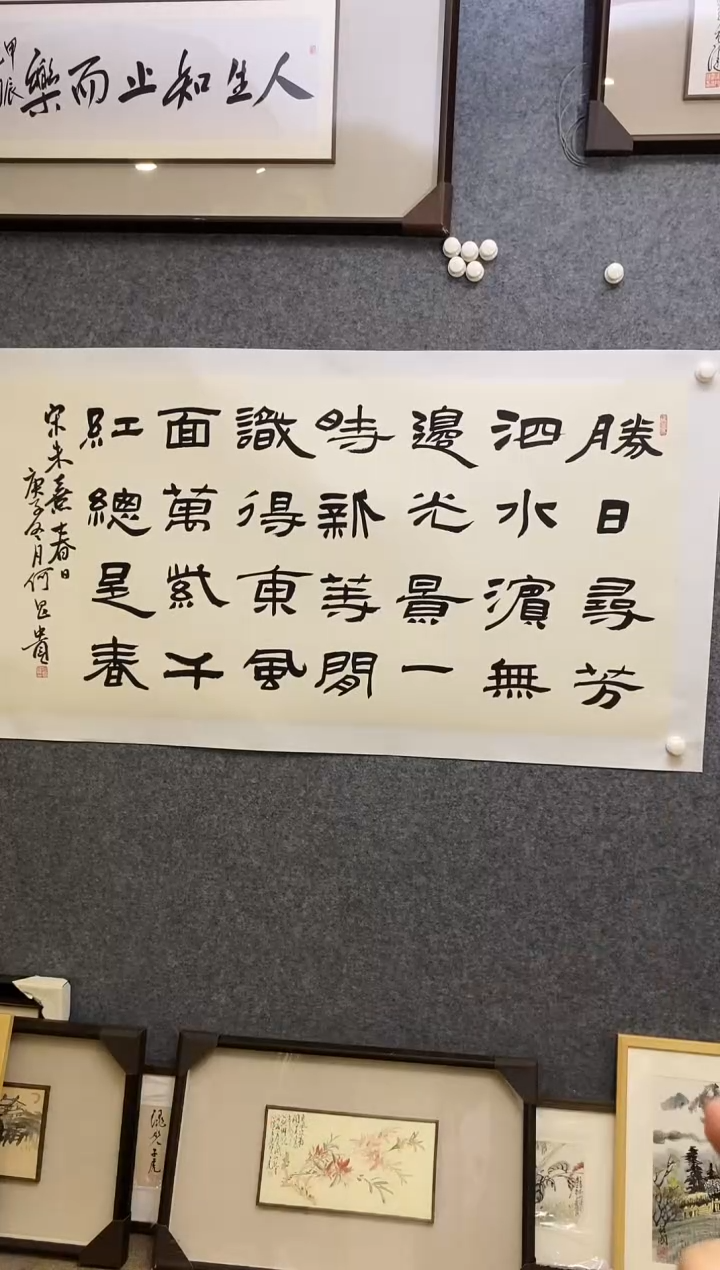 人生知止而樂
甲辰
勝日尋芳
泗水濱無
邊光景一
時新等閒
識得東風
面萬紫千
紅總是春
宋朱熹春日
庚子冬月何貴